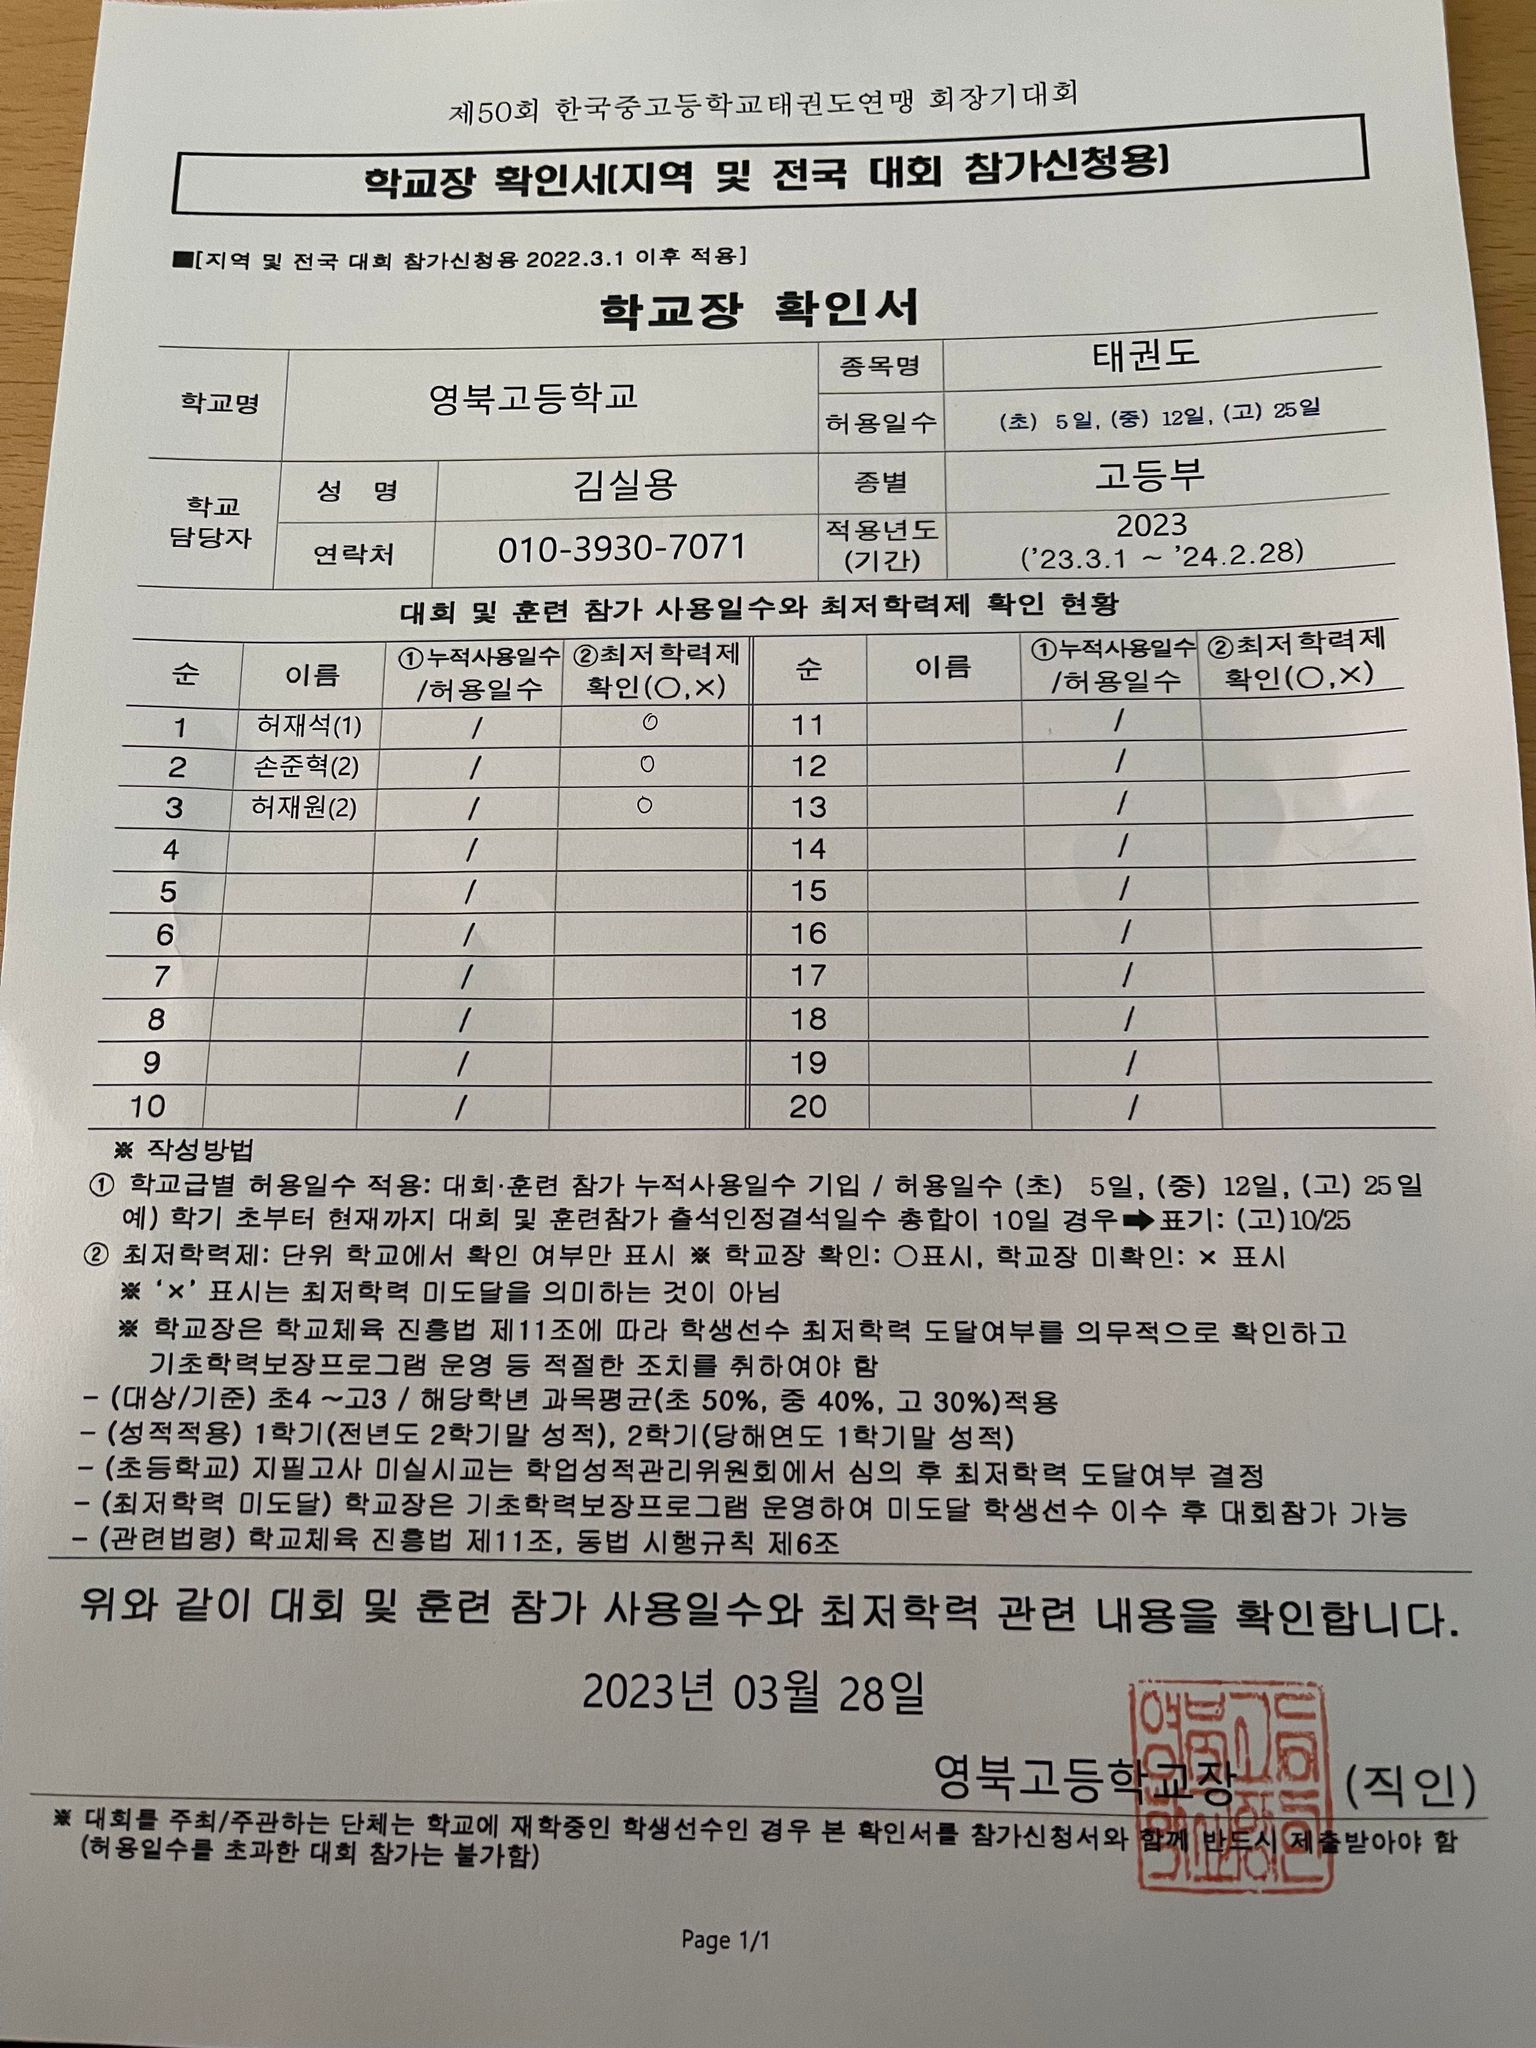 제50회 한국중고등학교태권도연맹 회장기대회
학교장 확인서(지역 및 전국 대회 참가신청용)
■[지역 및 전국 대회 참가신청용 2022.3.1 이후 적용]
학교장 확인서
학교명 영북고등학교 종목명 태권도
허용일수 (초) 5일, (중) 12일, (고) 25일
학교 담당자 성 명 김실용 종별 고등부
연락처 010-3930-7071 적용년도 (기간) 2023 ('23.3.1 ~ '24.2.28)
대회 및 훈련 참가 사용일수와 최저학력제 확인 현황
순 이름 ①누적사용일수 /허용일수 ②최저학력제 확인(○,×) 순 이름 ①누적사용일수 /허용일수 ②최저학력제 확인(○,×)
1 허재석(1) / ○ 11 /
2 손준혁(2) / ○ 12 /
3 허재원(2) / ○ 13 /
4 / 14 /
5 / 15 /
6 / 16 /
7 / 17 /
8 / 18 /
9 / 19 /
10 / 20 /
※ 작성방법
① 학교급별 허용일수 적용: 대회·훈련 참가 누적사용일수 기입 / 허용일수 (초) 5일, (중) 12일, (고) 25일
예) 학기 초부터 현재까지 대회 및 훈련참가 출석인정결석일수 총합이 10일 경우➡표기: (고)10/25
② 최저학력제: 단위 학교에서 확인 여부만 표시 ※ 학교장 확인: ○표시, 학교장 미확인: × 표시
※ '×' 표시는 최저학력 미도달을 의미하는 것이 아님
※ 학교장은 학교체육 진흥법 제11조에 따라 학생선수 최저학력 도달여부를 의무적으로 확인하고
기초학력보장프로그램 운영 등 적절한 조치를 취하여야 함
- (대상/기준) 초4 ~고3 / 해당학년 과목평균(초 50%, 중 40%, 고 30%)적용
- (성적적용) 1학기(전년도 2학기말 성적), 2학기(당해연도 1학기말 성적)
- (초등학교) 지필고사 미실시교는 학업성적관리위원회에서 심의 후 최저학력 도달여부 결정
- (최저학력 미도달) 학교장은 기초학력보장프로그램 운영하여 미도달 학생선수 이수 후 대회참가 가능
- (관련법령) 학교체육 진흥법 제11조, 동법 시행규칙 제6조
위와 같이 대회 및 훈련 참가 사용일수와 최저학력 관련 내용을 확인합니다.
2023년 03월 28일
영북고등학교장 (직인)
※ 대회를 주최/주관하는 단체는 학교에 재학중인 학생선수인 경우 본 확인서를 참가신청서와 함께 반드시 제출받아야 함
(허용일수를 초과한 대회 참가는 불가함)
Page 1/1